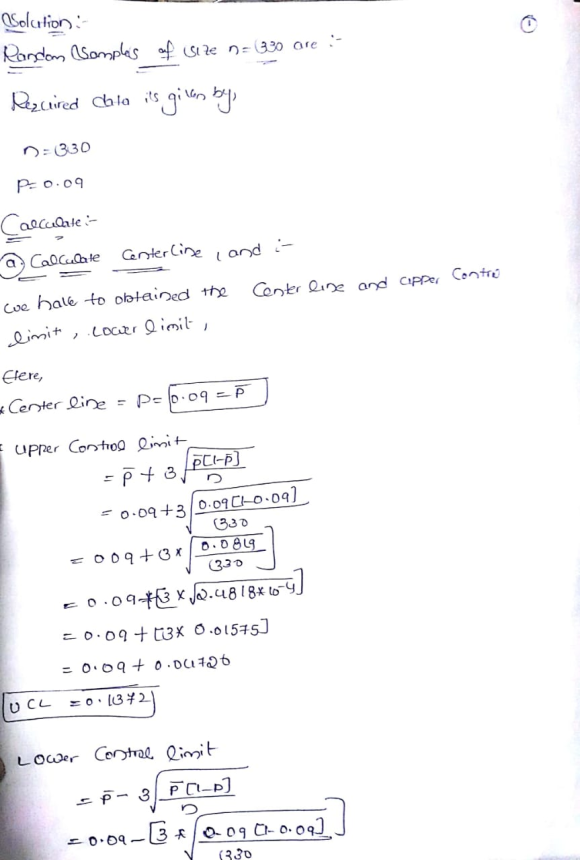 Solution:-
①
Random Samples of size n=330 are :-
Required data is given by,
n=330
P=0.09
Calculate:-
ⓐ Calculate Centerline, and :-
we have to obtained the Center line and upper Contro
limit, Lower limit,
Here,
* Center line = P= 0.09 = p̄
* upper Control limit
= p̄ + 3√(p̄[1-p̄]/n)
= 0.09+3√(0.09[1-0.09]/330)
= 0.09+3*√(0.0819/330)]
= 0.09+[3×√2.4818*10-4]
= 0.09 + [3× 0.01575]
= 0.09 + 0.04726
UCL = 0.1372
Lower Control limit
= p̄- 3√(p̄[1-p]/n)
= 0.09-[3*√(0.09[1-0.09]/330)]